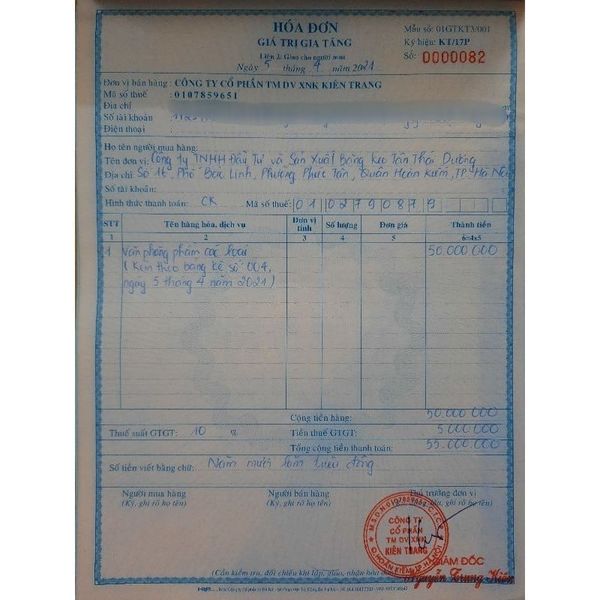 HÓA ĐƠN
GIÁ TRỊ GIA TĂNG
Liên 2: Giao cho người mua
Ngày 5 tháng 4 năm 2021
Mẫu số: 01GTKT3/001
Ký hiệu: KT/17P
Số: 0000082
Đơn vị bán hàng: CÔNG TY CỔ PHẦN TM DV XNK KIÊN TRANG
Mã số thuế: 0107859651
Địa chỉ
Số tài khoản
Điện thoại
Họ tên người mua hàng:
Tên đơn vị: Công ty TNHH Đầu Tư và Sản Xuất Băng Keo Tân Thái Dương
Địa chỉ: Số 16, Phố Bắc Linh, Phường Phúc Tân, Quận Hoàn Kiếm, TP. Hà Nội
Số tài khoản:
Hình thức thanh toán: CK Mã số thuế: 0102790879
STT Tên hàng hóa, dịch vụ Đơn vị tính Số lượng Đơn giá Thành tiền
1 2 3 4 5 6=4x5
1 Văn phòng phẩm các loại 50.000.000
(Kèm theo bảng kê số 004,
ngày 5 tháng 4 năm 2021)
Cộng tiền hàng: 50.000.000
Thuế suất GTGT: 10 % Tiền thuế GTGT: 5.000.000
Tổng cộng tiền thanh toán: 55.000.000
Số tiền viết bằng chữ: Năm mươi lăm triệu đồng
Người mua hàng Người bán hàng Thủ trưởng đơn vị
(Ký, ghi rõ họ tên) (Ký, ghi rõ họ tên) (Ký, ghi rõ họ tên)
M.S.D.N:0107859651-C.T.C.P
CÔNG TY
CỔ PHẦN
TM DV XNK
KIÊN TRANG
Q.HOÀN KIẾM-TP.HÀ NỘI
GIÁM ĐỐC
Nguyễn Trung Kiên
(Cần kiểm tra, đối chiếu khi lập, giao, nhận hóa đơn)